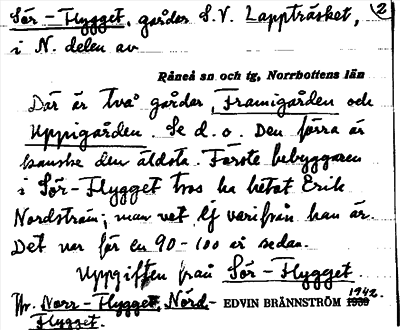 Sör-Flygget, gårdar S.V. Lappträsket, 2
i N. delen av
Råneå sn och tg, Norrbottens län
Där är två gårdar, Framigården och
Uppigården. Se d. o. Den förra är
kanske den äldsta. Förste bebyggaren
i Sör-Flygget tros ha hetat Erik
Nordström; man vet ej varifrån han är.
Det var för en 90-100 år sedan.
Uppgiften från Sör-Flygget.
Jfr. Norr-Flygget, Nörd- EDVIN BRÄNNSTRÖM 1942.
Flygget.